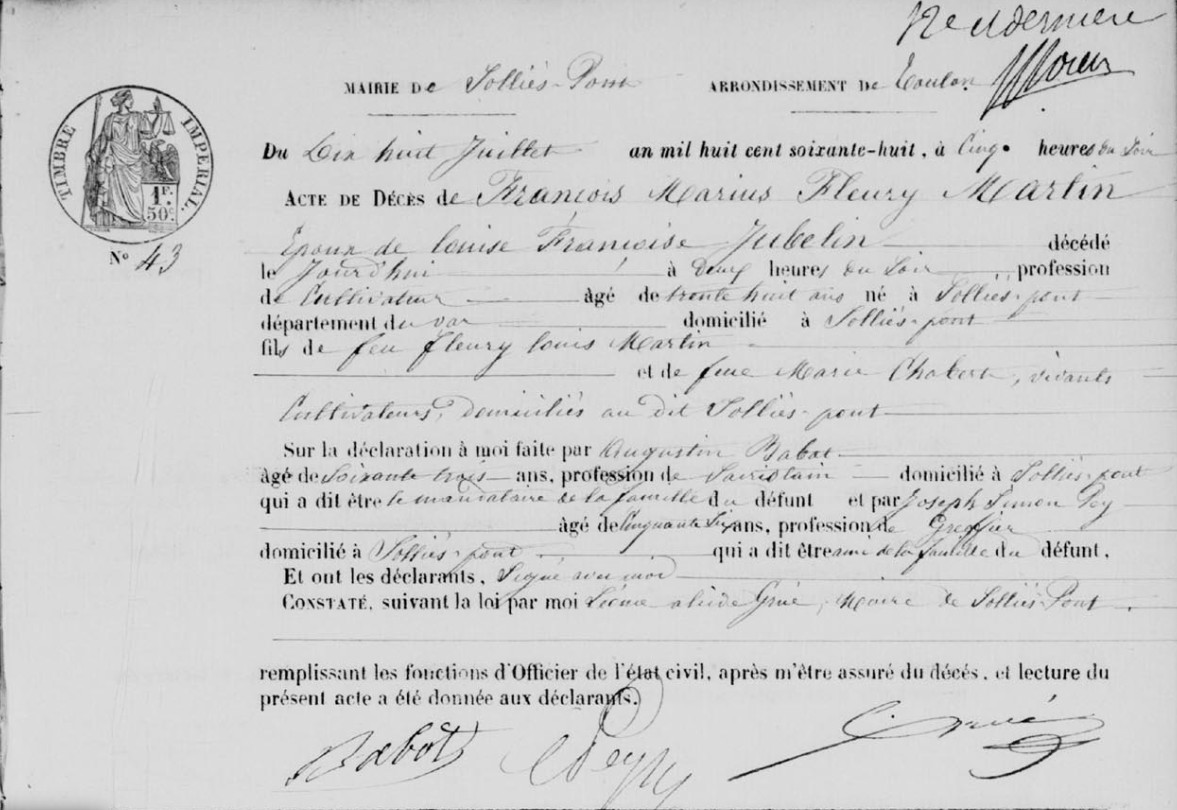 12e et dernière
MAIRIE DE Solliès-Pont ARRONDISSEMENT DE Toulon
TIMBRE IMPÉRIAL.
1F.
50c.
Du Dix huit Juillet an mil huit cent soixante-huit, à Cinq heures du Soir
ACTE DE DÉCÈS de François Marius Fleury Martin
Epoux de louise Françoise Jubelin décédé
N° 43
le Jourd'hui à deux heures du Soir profession
de Cultivateur âgé de trente huit ans né à Solliès-pont
département du var domicilié à Solliès-pont
fils de feu fleury louis Martin
et de feue Marie Chabert, vivants
Cultivateurs, domiciliés au dit Solliès-pont
Sur la déclaration à moi faite par Augustin Babot
âgé de Soixante trois ans, profession de Sacristain domicilié à Solliès-pont
qui a dit être le mandataire de la famille du défunt et par Joseph Simon Pey
âgé de Cinquante Six ans, profession de Greffier
domicilié à Solliès-pont qui a dit être ami de la famille du défunt,
Et ont les déclarants, Signé avec moi
CONSTATÉ, suivant la loi par moi Grué, Maire de Solliès-Pont.
remplissant les fonctions d'Officier de l'état civil, après m'être assuré du décés, et lecture du
présent acte a été donnée aux déclarants.
Babot Pey Grué